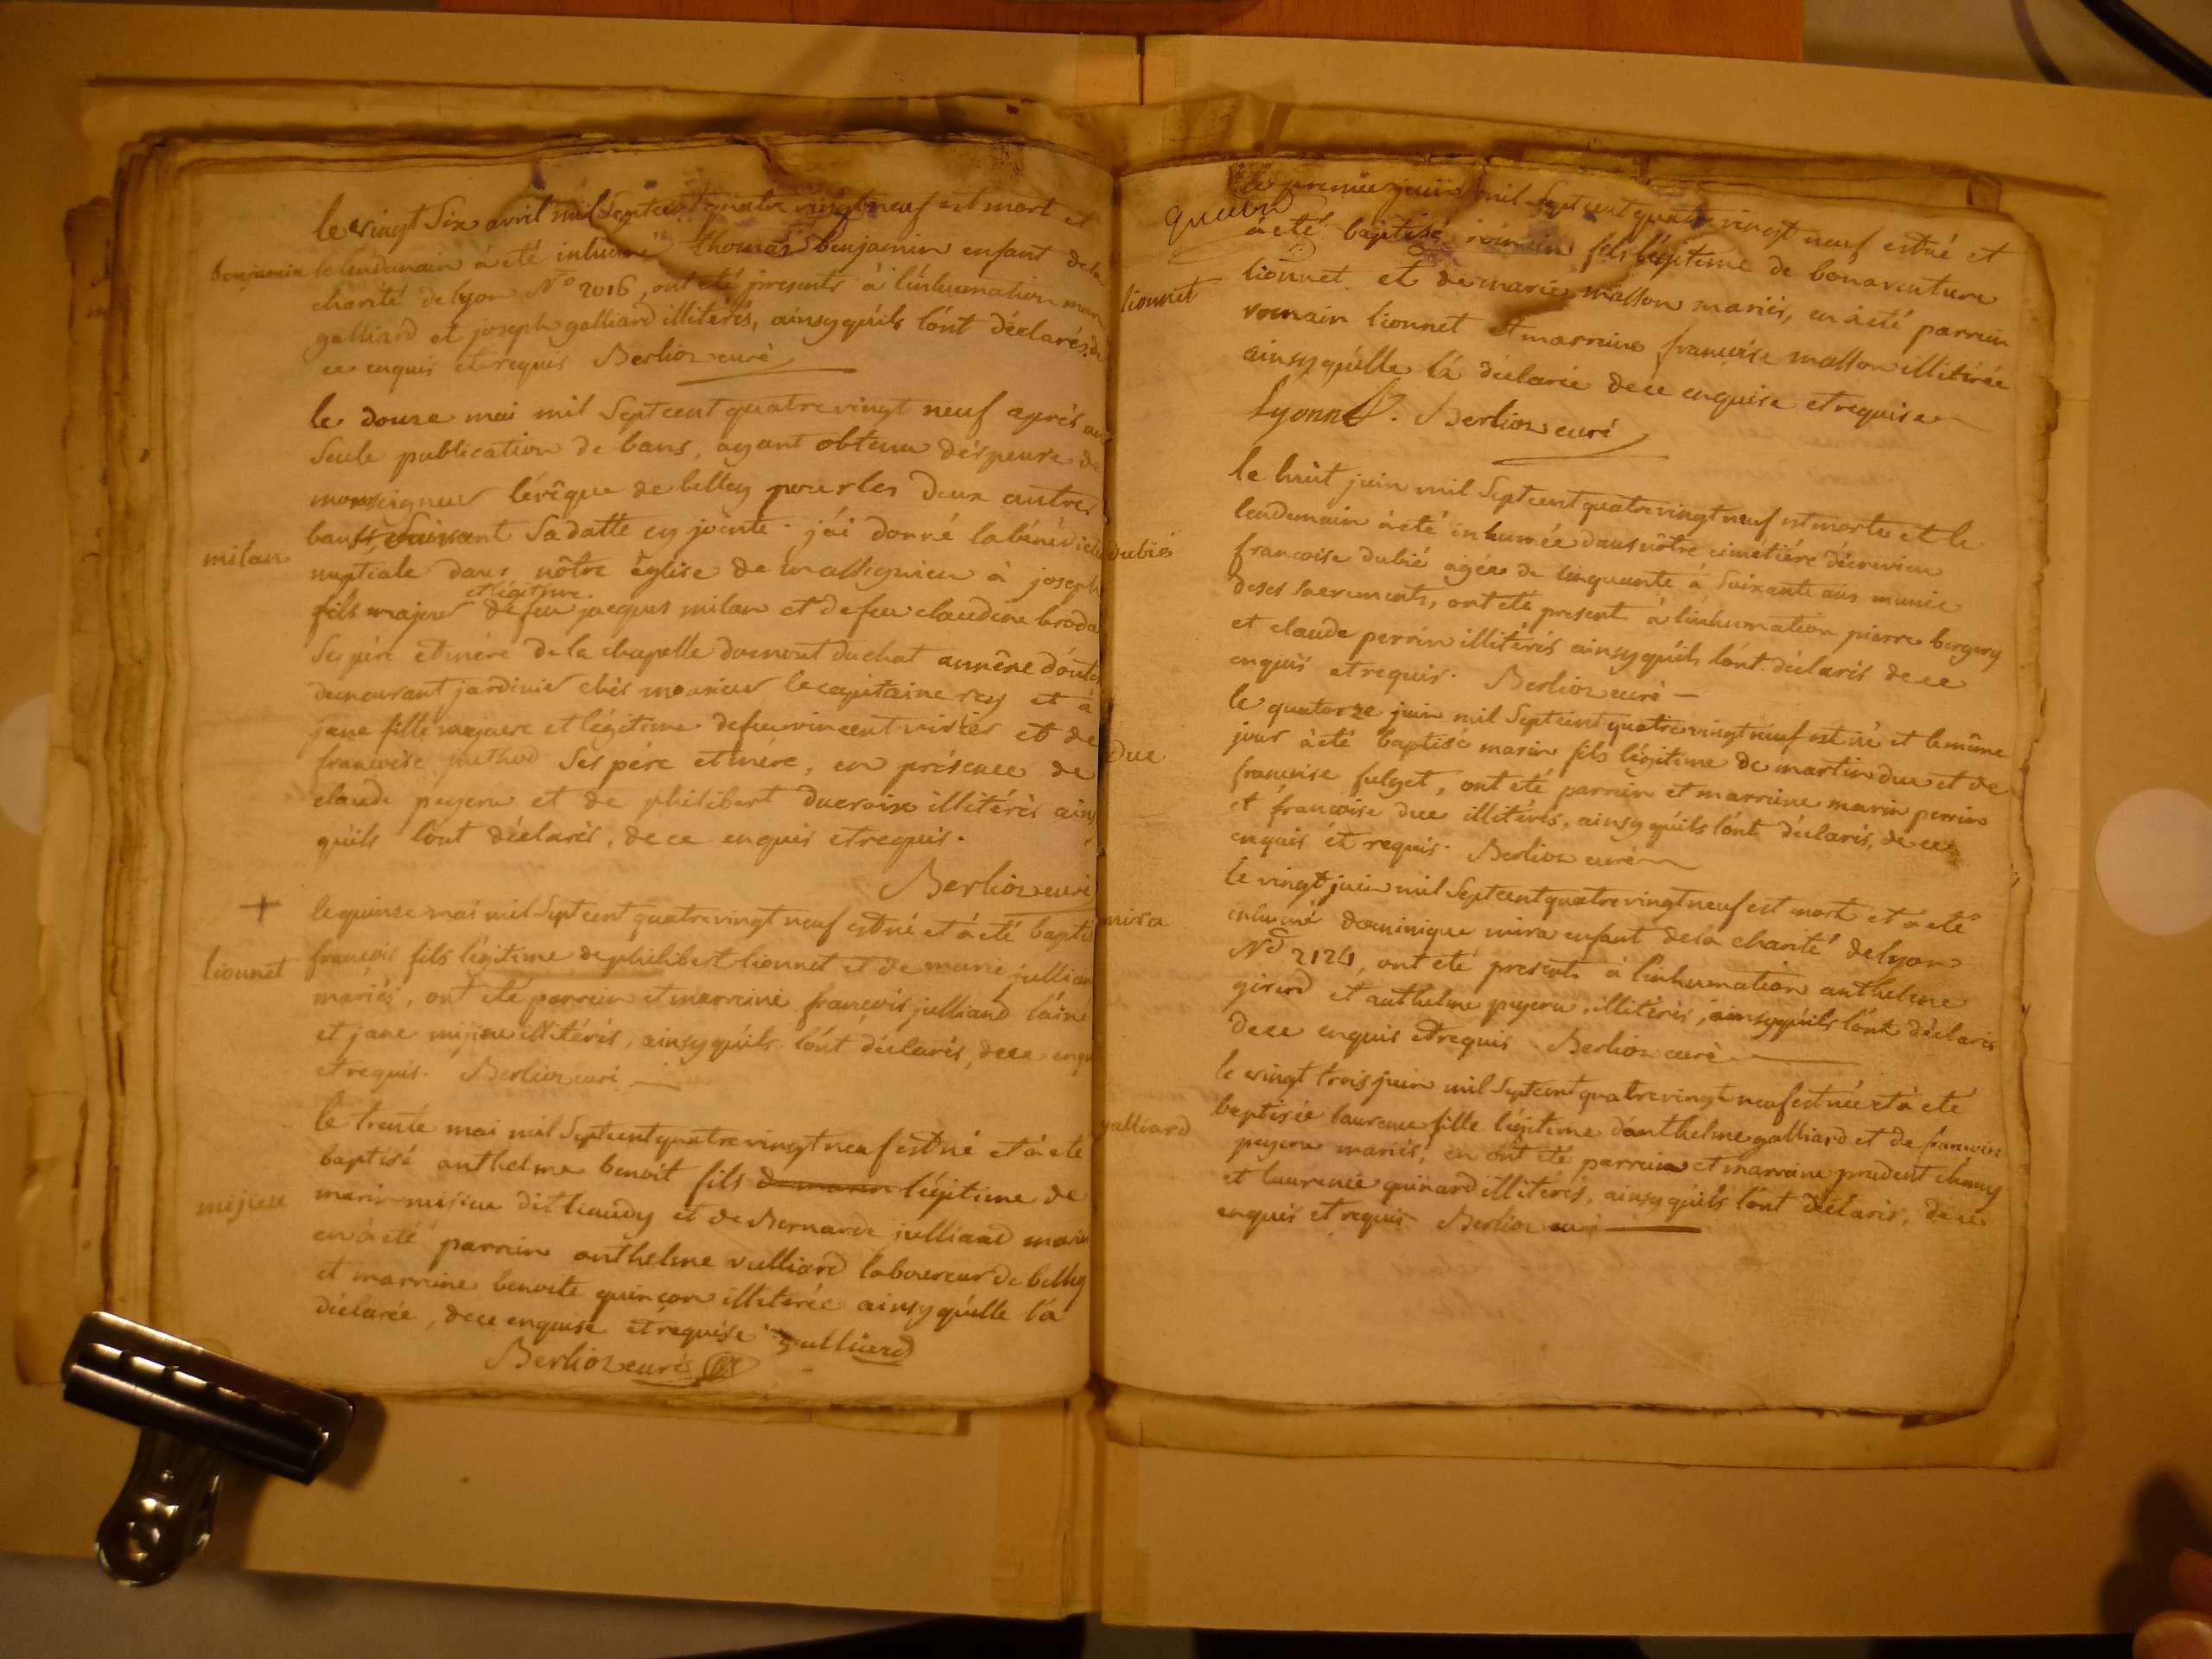 le vingt Six avril mil Sept cent quatre vingt neuf est mort et
benjamin
le lendemain à été inhumé thomas benjamin enfant de la
charité de lyon N° 2016, ont été presents à l'inhumation
galliard et joseph galliard illitérés, ainsy qúils lónt déclarés, de
ce enquis et requis Berlioz curé
le douze mai mil Sept cent quatre vingt neuf aprés
Seule publication de bans, ayant obtenu déspense de
monseigneur lévêque de belley pour les deux autres
bans, Suivant Sa datte cy jointe. jái donné la bénédict
milan
nuptiale dans nôtre église de massignieu à joseph
et légitime
fils majeur de feu jacques milan et de feu claudine
Ses pére et mére de la chapelle du mont du chat
demeurant jardinier chés monsieur le capitaine rey et à
jane fille majeure et légitime de feu vincent et de
francoise juthod Ses pére et mére, en présence de
claude peyeru et de philibert ducroix illitérés ains
qúils lónt déclarés, de ce enquis et requis.
Berlioz curé
+
le quinze mai mil Sept cent quatre vingt neuf est né et à été baptis
lionnet
françois fils légitime de philibert lionnet et de marie julliand
mariés, ont été parrein et marreine françois julliand láiné
et jane mijieu illitérés, ainsy qúils lónt déclarés, de ce enqu
et requis. Berlioz curé
le trente mai mil Sept cent quatre vingt neuf est né et à été
baptisé anthelme benoit fils légitime de
mijieu
marin mijieu dit baudy et de Bernarde julliand marié
en à été parrein anthelme vulliard laboureur de belley
et marreine benoite quinçon illiterée ainsy qúelle lá
déclarée, de ce enquise et requise vulliard
Berlioz curé
le premier juin mil Sept cent quatre vingt neuf est né et
à été baptisé romain fils légitime de bonaventure
lionnet
lionnet et de marie masson mariés, en à été parrein
romain lionnet et marreine françoise masson illitérée
ainsy qúelle lá déclarée de ce enquise et requise
Lyonnet. Berlioz curé
le huit juin mil Sept cent quatre vingt neuf est morte et le
lendemain à été inhumée dans nôtre cimétiére
dubié
francoise dubié agée de cinquante à Soixante ans munie
de ses Sacrements, ont été present à l'inhumation pierre bergery
et claude perrin illitérés ainsy qúils lónt déclarés de ce
enquis et requis. Berlioz curé
le quatorze juin mil Sept cent quatre vingt neuf est né et le même
duc
jour à été baptisé marin fils légitime de martin duc et de
francoise fulget, ont été parrein et marreine marin perrin
et francoise duc illitérés, ainsy qúils lónt déclarés, de ce
enquis et requis. Berlioz curé
le vingt juin mil Sept cent quatre vingt neuf est mort et à été
mira
inhumé dominique mira enfant de la charité de lyon
N° 2124, ont été presents à l'inhumation anthelme
girerd et anthelme peyeru, illitérés, ainsy qúils lónt déclarés
de ce enquis et requis. Berlioz curé
le vingt trois juin mil Sept cent quatre vingt neuf est née et à été
galliard
baptisée laurence fille légitime dánthelme galliard et de francoise
peyeru mariés, en ont été parrein et marreine prudent
et laurence guinard illiterés, ainsy qúils lónt déclarés, de ce
enquis et requis Berlioz curé